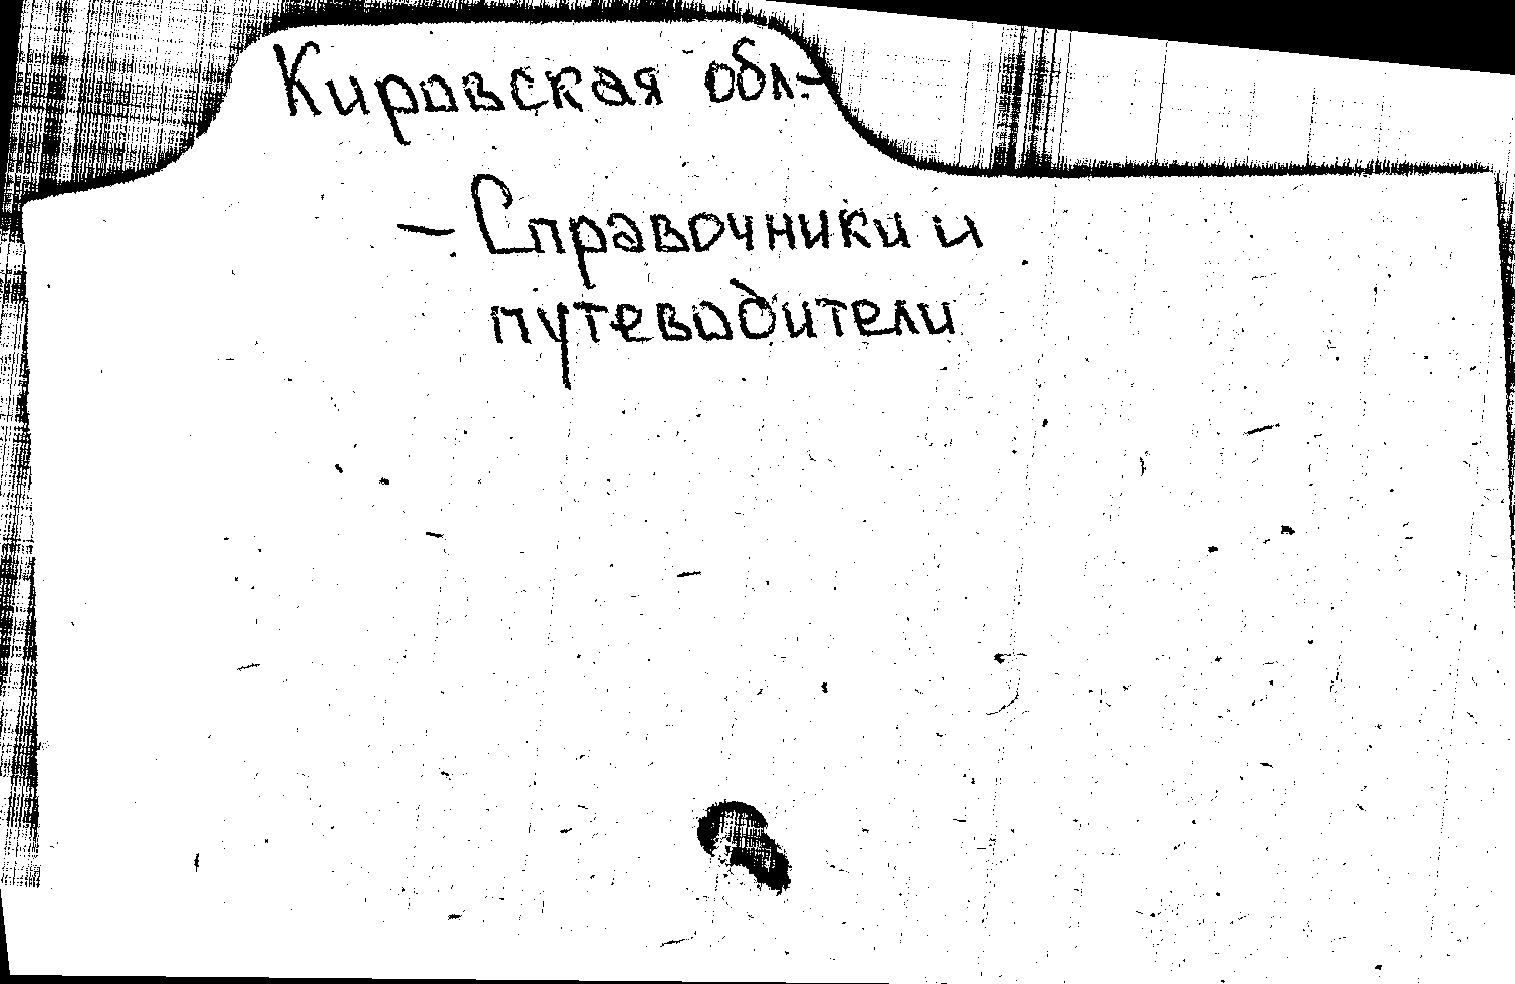 Кировская обл.-
- Справочники и
путеводители